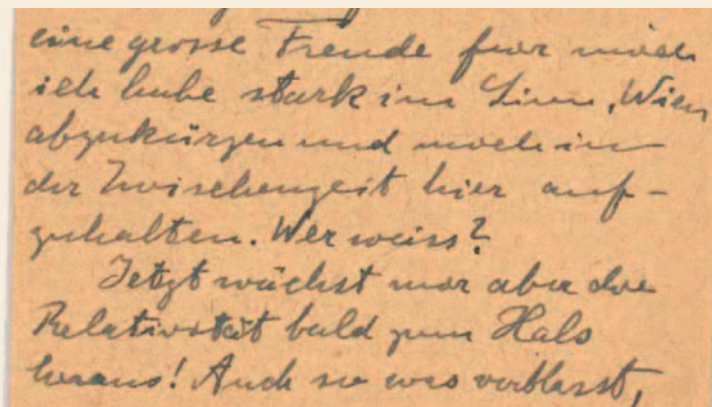 eine grosse Freude für mich
ich habe stark im Sinn, Wien
abzukürzen und mich in
der Zwischenzeit hier auf-
zuhalten. Wer weiss?
Jetzt wächst mir aber die
Relativität bald zum Hals
heraus! Auch so was verblasst,